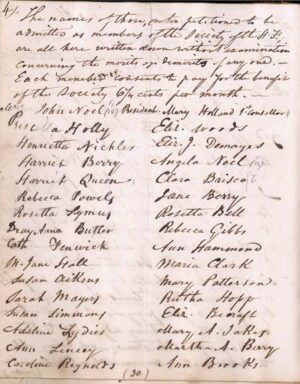 49.
The names of those, who petitioned to be
admitted as members of the Society of the H. F.
are all here written down without examination
concerning the merits or demerits of any one. —
Each member consents to pay for the benefit
of the Society 6¼ cents per month. —
John Noel President Mary Holland 1st Consellor
Priscilla Holly Eliz. Woods
Henrietta Nichles Eliz. J.
Harriet Berry Angela Noel
Harriet Queen Clara Briscoe
Rebecca Powels Jane Berry
Rosetta Lymer Rosetta Bell
Anna Butler Rebecca Gibbs
Cath Fenwick Ann Hammond
M. Jane Hall Maria Clark
Susan Aikins Mary Patterson
Sarah Mayers Hopp
Susan Simmons Eliz. Becraft
Adaline Lydies Mary A. Jakes
Ann Martha A. Berry
Caroline Reynolds Ann Brooks
(30)